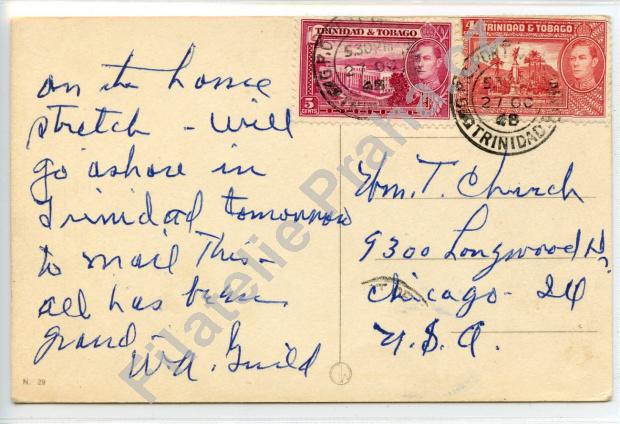 on the home
stretch - will
go ashore in
Trinidad tomorrow
to mail this -
all has been
grand
W.A. Guild
N. 29
TRINIDAD & TOBAGO
5
CENTS
TRINIDAD & TOBAGO
4
G.P.O.
5.30 PM
27 OC
48
G.P.O.
5.30 PM
27 OC
48
TRINIDAD
Wm. T. Church
9300 Longwood Dr.
Chicago - Ill
U.S.A.
Filatelie Praha